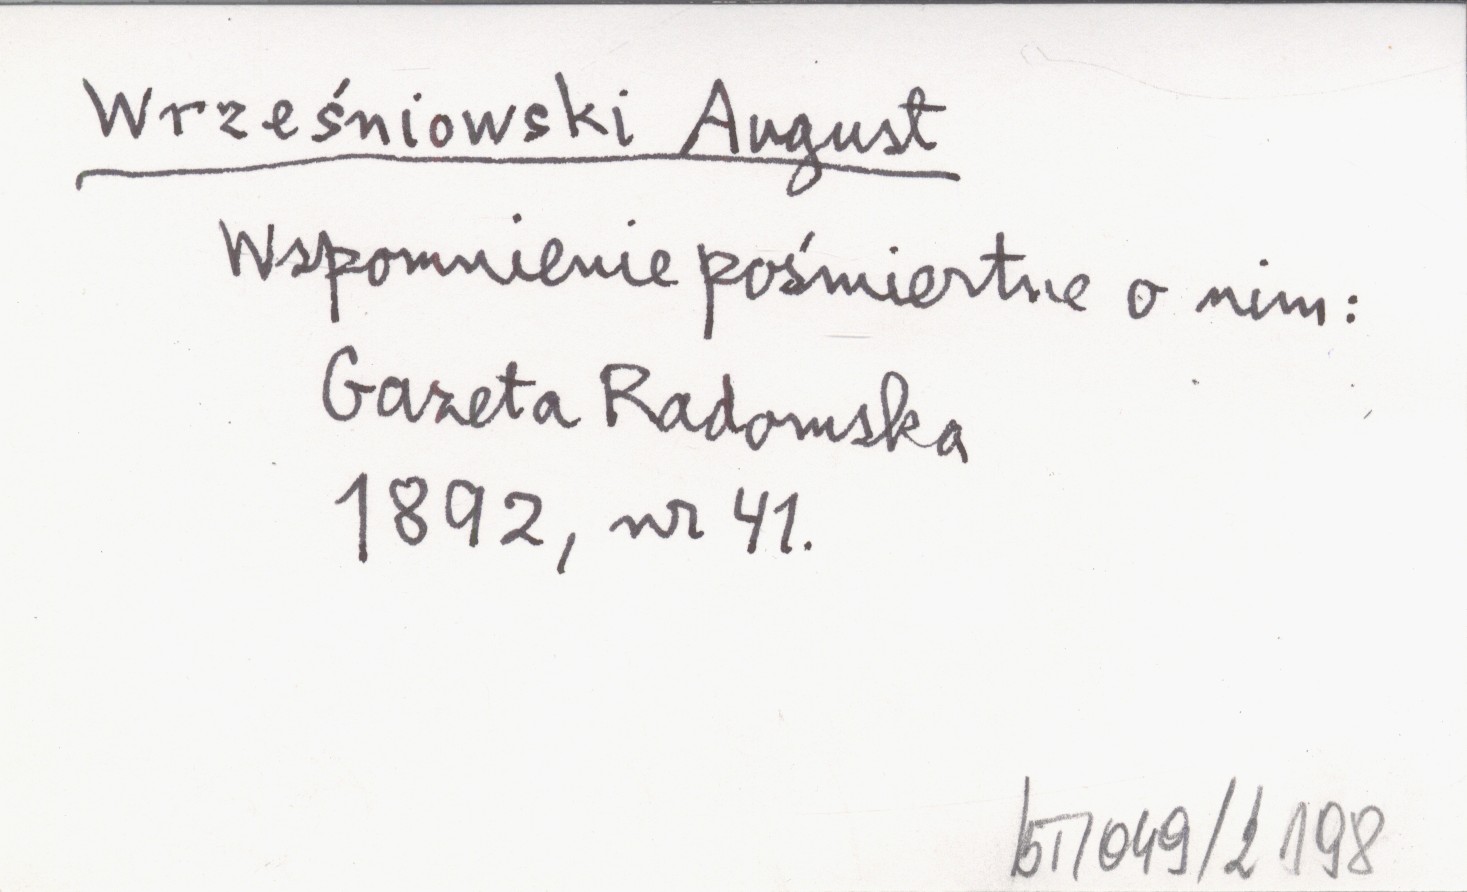 Wrześniowski August
Wspomnienie pośmiertne o nim:
Gazeta Radomska
1892, nr 41.
198